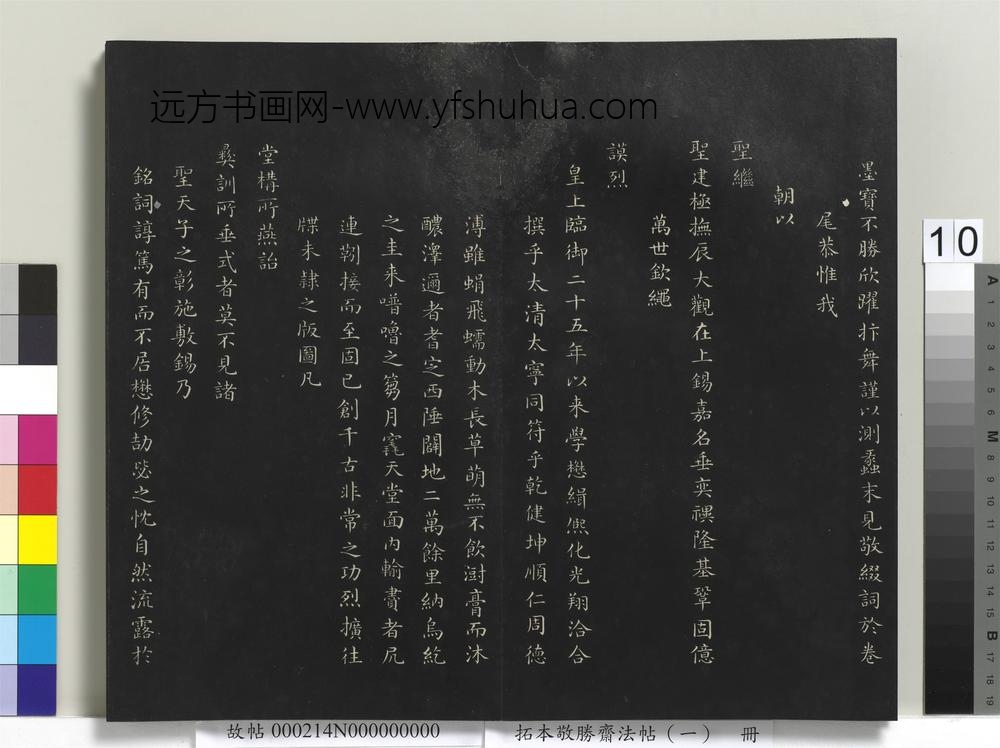 远方书画网-www.yfshuhua.com
墨寶不勝欣躍抃舞謹以測蠡末見敬綴詞於卷
尾恭惟我
朝以
聖繼
聖建極撫辰大觀在上錫嘉名垂奕禩隆基鞏固億
萬世欽繩
謨烈
皇上臨御二十五年以来學懋緝熙化光翔洽合
撰乎太清太寧同符乎乾健坤順仁周德
溥雖蜎飛蠕動木長草萌無不飲澍膏而沐
醲澤邇者耆定西陲闢地二萬餘里納烏紇
之圭来噆嚕之篘月竁天堂面內輸賮者凥
連鞀接而至固已創千古非常之功烈擴往
牒未隷之版圖凡
堂構所燕詒
彝訓所垂式者莫不見諸
聖天子之彰施敷錫乃
銘詞諄篤有而不居懋修劼毖之忱自然流露於
10
A 1 2 3 4 5 6 M 8 9 10 11 12 13 14 15 B 17 18 19
故帖 000214N000000000
拓本敬勝齋法帖（一） 冊